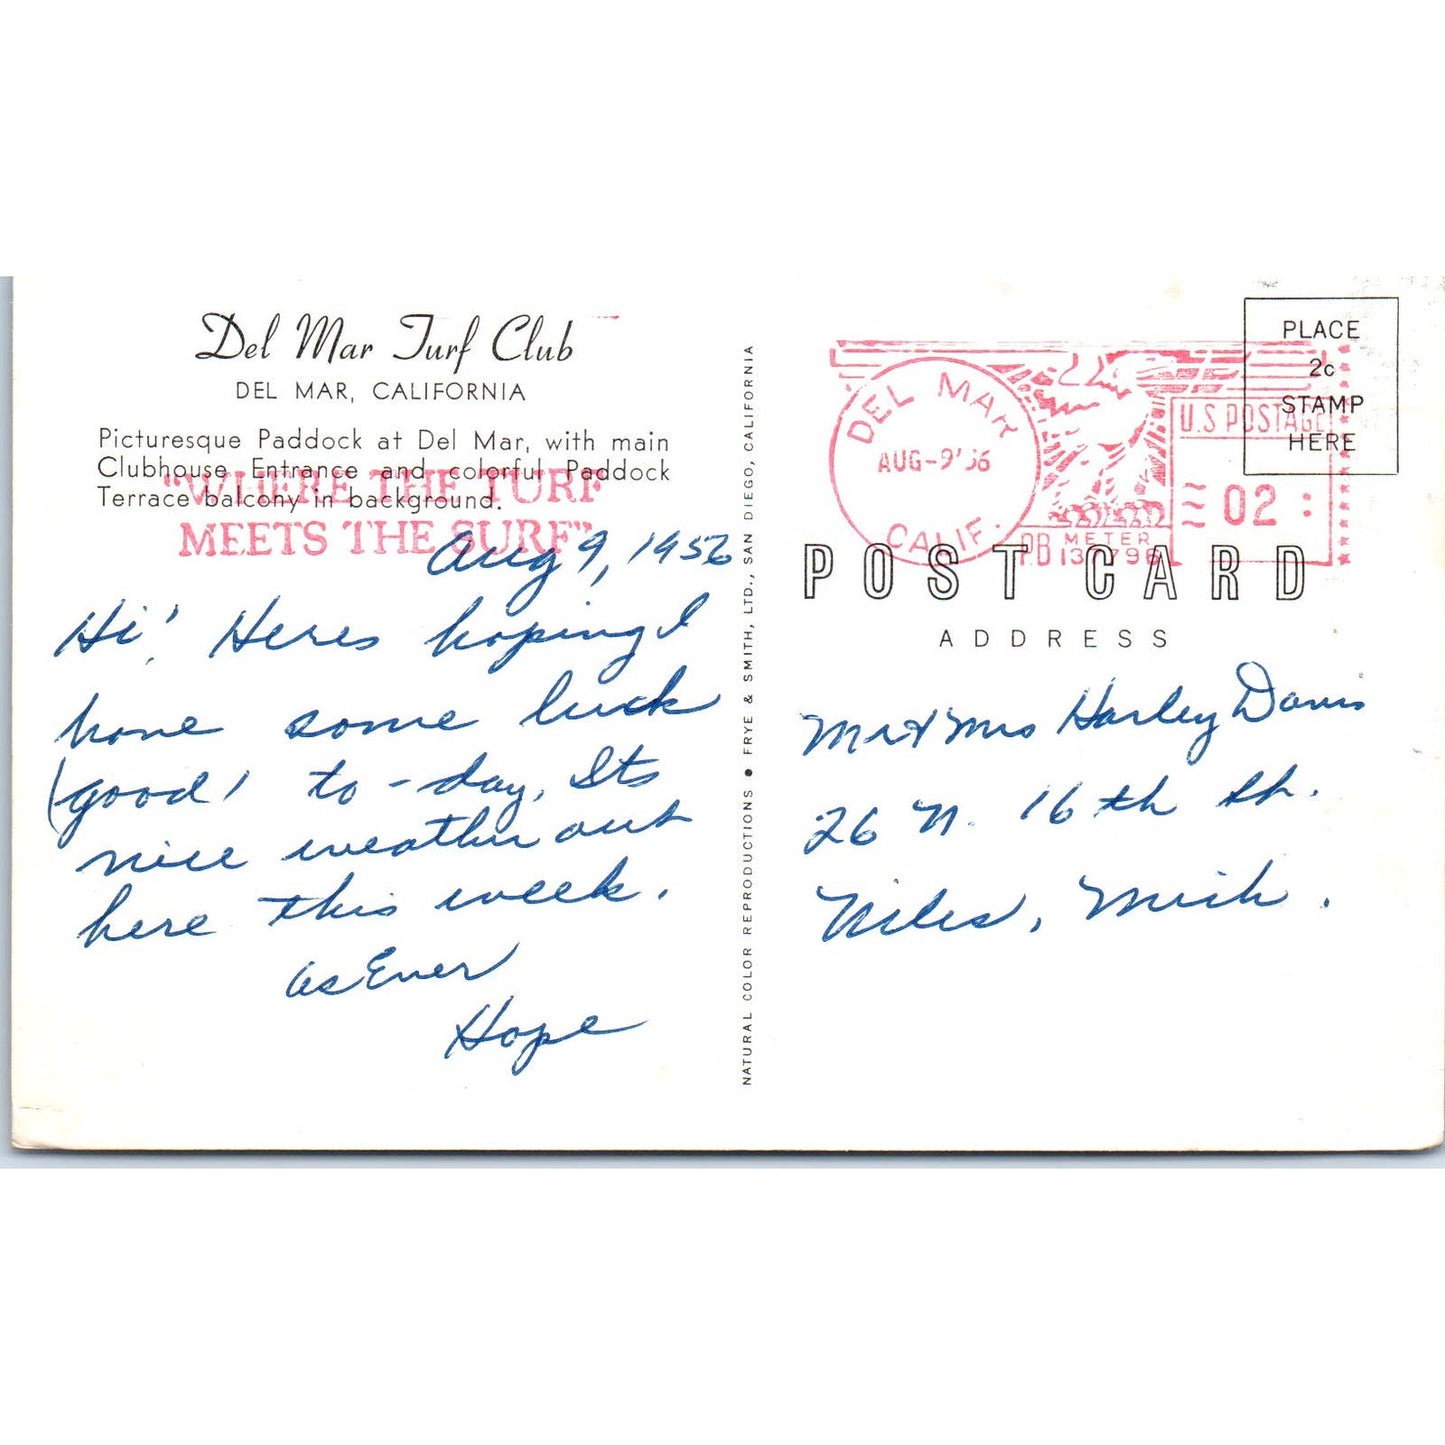 Del Mar Turf Club
DEL MAR, CALIFORNIA
Picturesque Paddock at Del Mar, with main
Clubhouse Entrance and colorful Paddock
Terrace balcony in background.
"WHERE THE TURF
MEETS THE SURF"
Aug 9, 1956
Hi! Heres hoping I
have some luck
(good) to-day. Its
nice weather out
here this week.
as Ever
Hope
NATURAL COLOR REPRODUCTIONS • FRYE & SMITH, LTD., SAN DIEGO, CALIFORNIA
DEL MAR
AUG-9'56
CALIF.
U.S POSTAGE
02
METER
PB
PLACE
2c
STAMP
HERE
POST CARD
ADDRESS
Mr & Mrs Harley Davis
26 N. 16th St.
Niles, Mich.